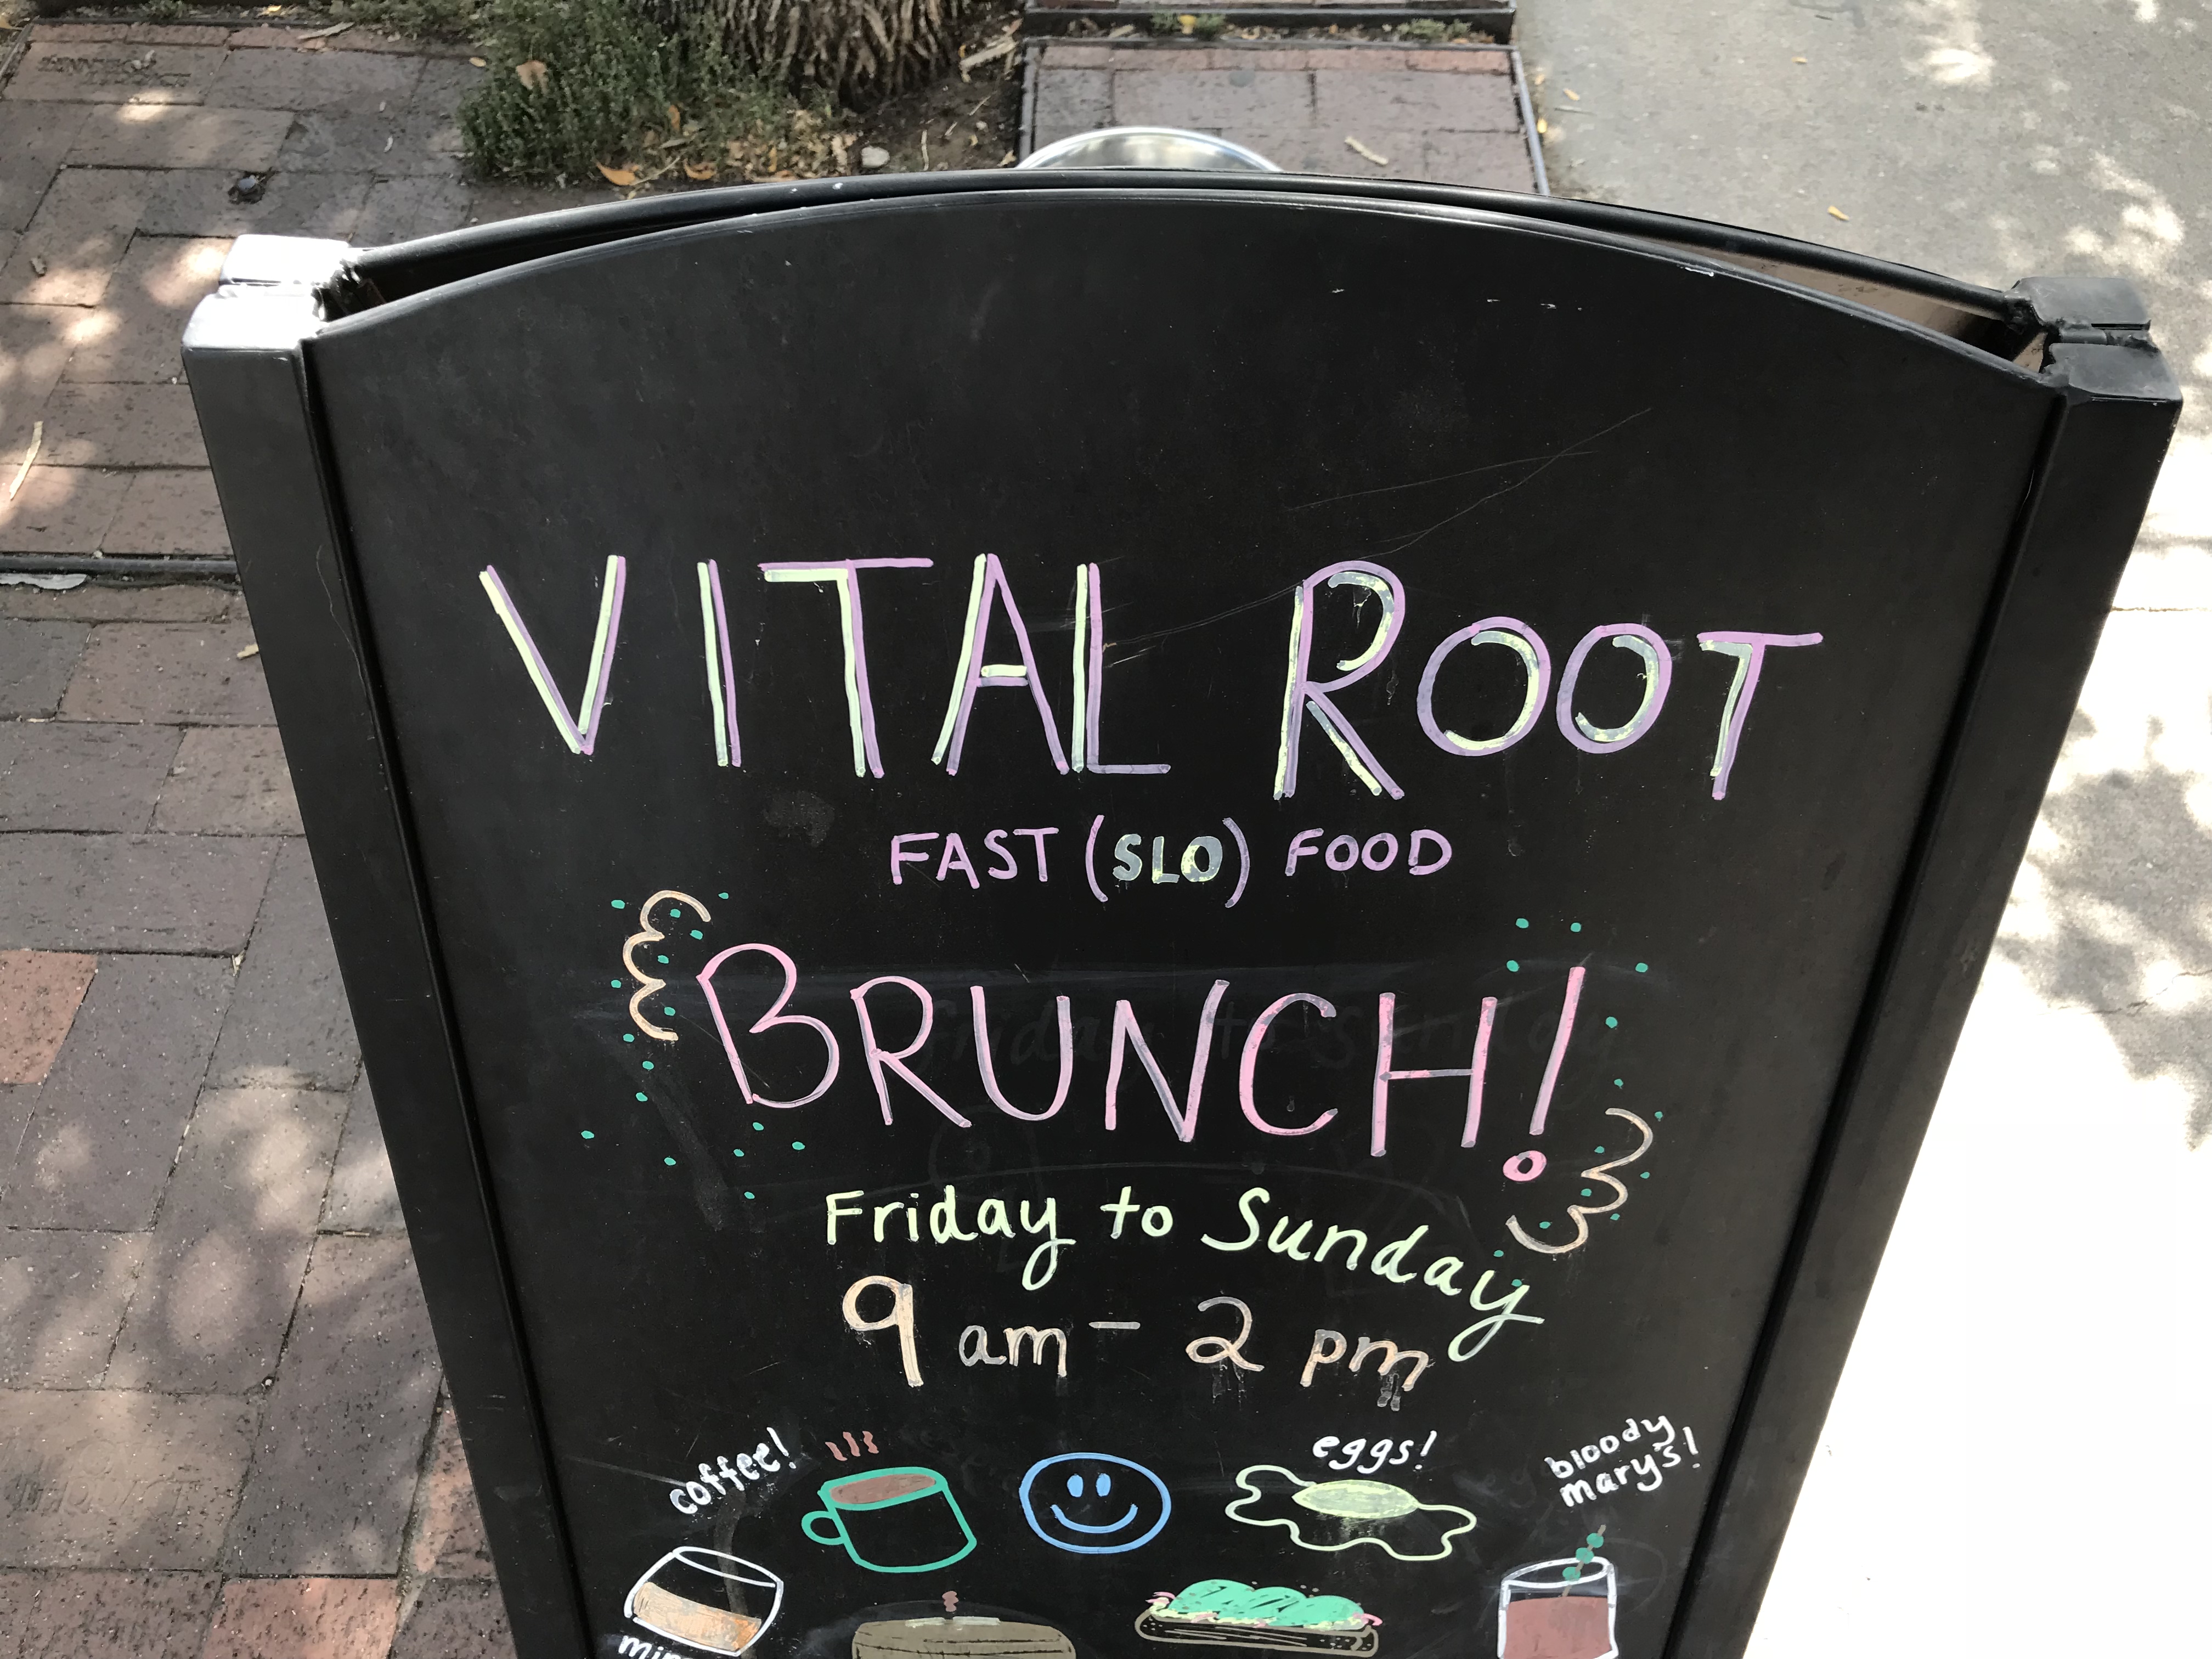 VITAL ROOT
FAST (SLO) FOOD
BRUNCH!
Friday to Sunday
9 am – 2 pm
coffee!
eggs!
bloody
mary's!